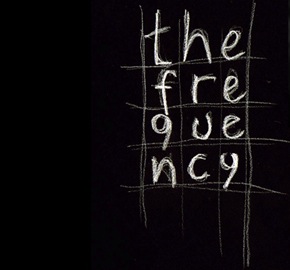 the
fre
que
ncy